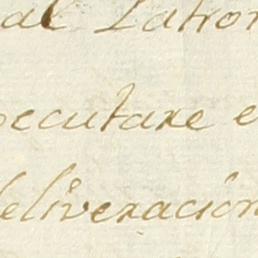 al Patron
ecutare e
deliveración